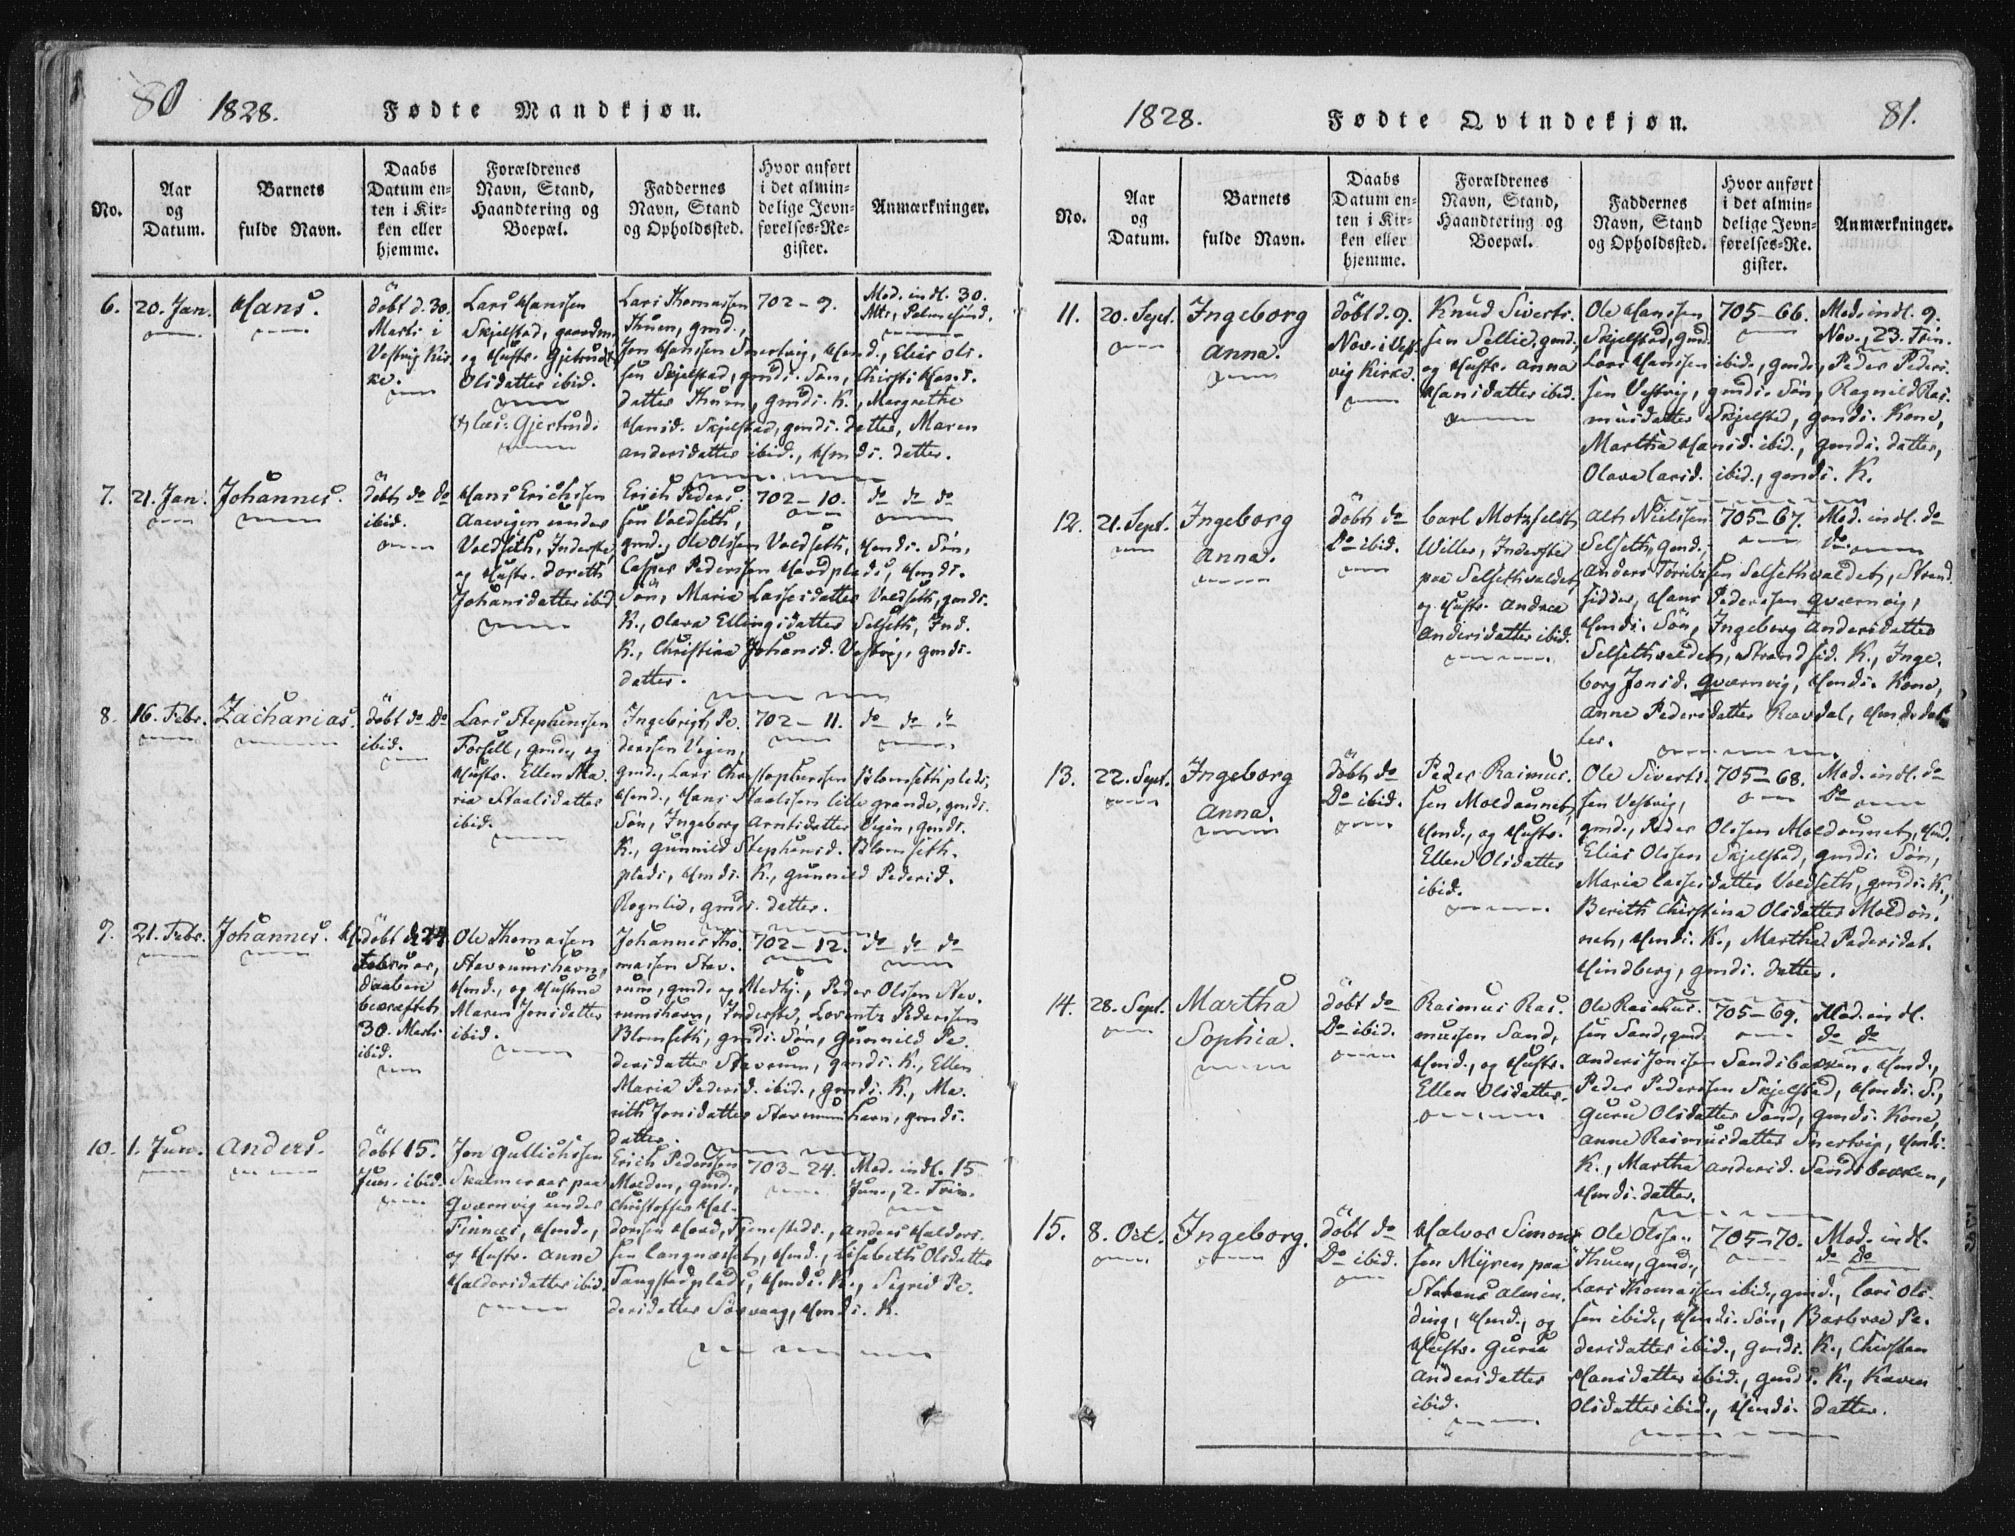 80 1828. Fødte Mandkjøn.
No.
Aar
og
Datum.
Barnets
fulde Navn.
Daabs
Datum en-
ten i Kir-
ken eller
hjemme.
Forældrenes
Navn, Stand,
Haandtering og
Boepæl.
Faddernes
Navn, Stand
og Opholdssted.
Hvor anført
i det almin-
delige Jevn-
førelses-Re-
gister.
Anmærkninger.
6. 20. Jan. Hans.
döbt d. 30.
Marts i
Vestvig Kir-
ke.
Lars Hanssen
Skjelstad, gaardm.
og Hustr. Gjertrud
Olsdatter ibid.
læs: Gjertrud.
Lars Thomassen
Thuen, gmd.,
Jon Hanssen Snertvig, Hmd., Elias Ols-
sen Skjelstad, gmds. Søn, Chirsti Hans-
datter Thuen, gmds. K., Margrethe
Hansd. Skjelstad, gmds. datter, Maren
Andersdatter ibid., Hmds. datter.
702-9.
Mod. indl. 30.
Mts., Palmesönd.
7. 21. Jan. Johannes.
döbt do do
ibid.
Hans Erichsen
Aasvigen under
Voldseth, Inderste,
og Hustr. Doreth
Johansdatter ibid.
Erich Peders-
sen Voldseth,
gmd., Ole Olssen Voldseth, Hmds. Søn,
Casper Pederssen Haadplads, Hmds.
Søn, Maria Lassesdatter Voldseth, gmds.
K., Olava Ellingsdatter Selseth, Ind.
K., Christina Johansd. Vestvig, gmds.
datter.
702-10.
do do do
8. 16. Febr. Zacharias.
döbt do Do
ibid.
Lars Stephenssen
Forsell, gmd., og
Hustr. Ellen Ma-
ria Staalsdatter
ibid.
Ingebrigt Pe-
derssen Vigen,
gmd., Lars Christophersen Blomsethsplads,
Hmd., Hans Staalssen lille grande, gmds.
Søn, Ingeborg Arntsdatter Vigen, gmds.
K., Gunnild Stephensd. Blomseth-
plads, Hmds. K., Gunnild Pedersd.
Rognlid, gmds. datter.
702-11.
do do do
9. 21. Febr. Johannes.
döbt d. 24
Februar,
Daaben
bekræftet
30. Marts
ibid.
Ole Thomassen
Stavrumshavn,
Hmd., og Hustrue
Maren Jonsdatter
ibid.
Johannes Tho-
massen Stav-
rum, gmd. og Medhj., Peder Olssen Stav-
rumshavn, Inderste, Lorentz Pederssen
Blomseth, gmds. Søn, Gunnild Pe-
dersdatter Stavrum, gmds. K., Ellen
Maria Pedersd. ibid., gmds. K., Ma-
rith Jonsdatter Stavrumshavn, gmds.
datter.
702-12.
do do do
10. 1. Jun. Anders.
döbt 15.
Jun. ibid.
Jon Gullichssen
Skalmeraas paa
Qværnvig under
Finnes, Hmd.,
og Hustr. Anne
Haldorsdatter ibid.
Erich Pederssen
Molden, gmd.,
Christoffer Hal-
dorsen Haad, Tjenesteds., Anders Haldors-
sen Langnæsset, Hmd., Lisabeth Olsdatter
Tangstadplads, Hmds. K., Sigrid Pe-
dersdatter Sørvaag, Hmds. K.
703-24.
Mod. indl. 15
Jun., 2. Trin.
1828. Fødte Qvindekjøn. 81.
No.
Aar
og
Datum.
Barnets
fulde Navn.
Daabs
Datum en-
ten i Kir-
ken eller
hjemme.
Forældrenes
Navn, Stand,
Haandtering og
Boepæl.
Faddernes
Navn, Stand
og Opholdssted.
Hvor anført
i det almin-
delige Jevn-
førelses-Re-
gister.
Anmærkninger.
11. 20. Sept. Ingeborg
Anna.
döbt d. 9.
Nov. i Vest-
vig Kirke.
Knud Siverts-
sen Sellie, gmd.,
og Hustr. Anna
Hansdatter ibid.
Ole Hanssen
Skjelstad, gmd.
Lars Hanssen ibid., gmd., Peder Peders-
sen Vestvig, gmds. Søn, Ragnild Ras-
musdatter Skjelstad, gmds. Kone,
Martha Hansd. ibid., gmds. datter,
Olava Larsd. ibid., gmds. K.
705-66.
Mod. indl. 9.
Nov., 23. Trin.
12. 21. Sept. Ingeborg
Anna.
döbt do
Do ibid.
Carl Motzfeldt
Willer, Inderste
paa Selsethvaldet,
og Hustr. Andrea
Andersdatter ibid.
Alt Nielssen
Selseth, gmd.,
Anders Toritzsen Selsethvaldet, Strand-
sidder, Hans Pederssen Qværnvig,
Hmds. Søn, Ingeborg Andersdatter
Selsethvaldet, Strandsid. K., Inge-
borg Jonsd. Qværnvig, Hmds. Kone,
Anne Pedersdatter Ravdal, Hmds. dat-
ter.
705-67.
Mod. indl. do
Do
13. 22. Sept. Ingeborg
Anna.
döbt do
Do ibid.
Peder Rasmus-
sen Moldounet,
Hmd., og Hustr.
Ellen Olsdatter
ibid.
Ole Siverts-
sen Vestvig,
gmd., Peder Olssen Moldounet, Hmd.
Elias Olssen Skjelstad, gmds. Søn,
Maria Lassesdatter Voldseth, gmds. K.,
Berith Christina Olsdatter Moldou-
net, Hmds. K., Martha Pedersdat.
Hindberg, gmds. datter.
705-68.
Mod. indl. do
Do
14. 28. Sept. Martha
Sophia.
döbt do
Do ibid.
Rasmus Ras-
mussen Sand,
Hmd., og Hustr.
Ellen Olsdatter.
Ole Rasmus-
sen Sand, gmd.
Anders Jonssen Sandsbakken, Hmd.,
Peder Pederssen Skjelstad, Hmds. S.,
Guru Olsdatter Sand, gmds. Kone,
Anne Rasmusdatter Snertvig, Hmds.
K., Martha Andersd. Sandsbakken,
Hmds. datter.
705-69.
Mod. indl.
do do
15. 8. Oct. Ingeborg.
döbt do
Do ibid.
Halvor Simons-
sen Myren paa
Statens Almin-
ding, Hmd., og
Hustr. Guria
Andersdatter
ibid.
Ole Olssen
Thuen, gmd.,
Lars Thomassen ibid., gmd., Lars Ols-
sen ibid., Hmds. Søn, Barbroe Pe-
dersdatter ibid., gmds. K., Chirsten
Hansdatter ibid., gmds. K., Karen
Olsdatter ibid., Hmds. datter.
705-70.
Mod. indl.
do Do